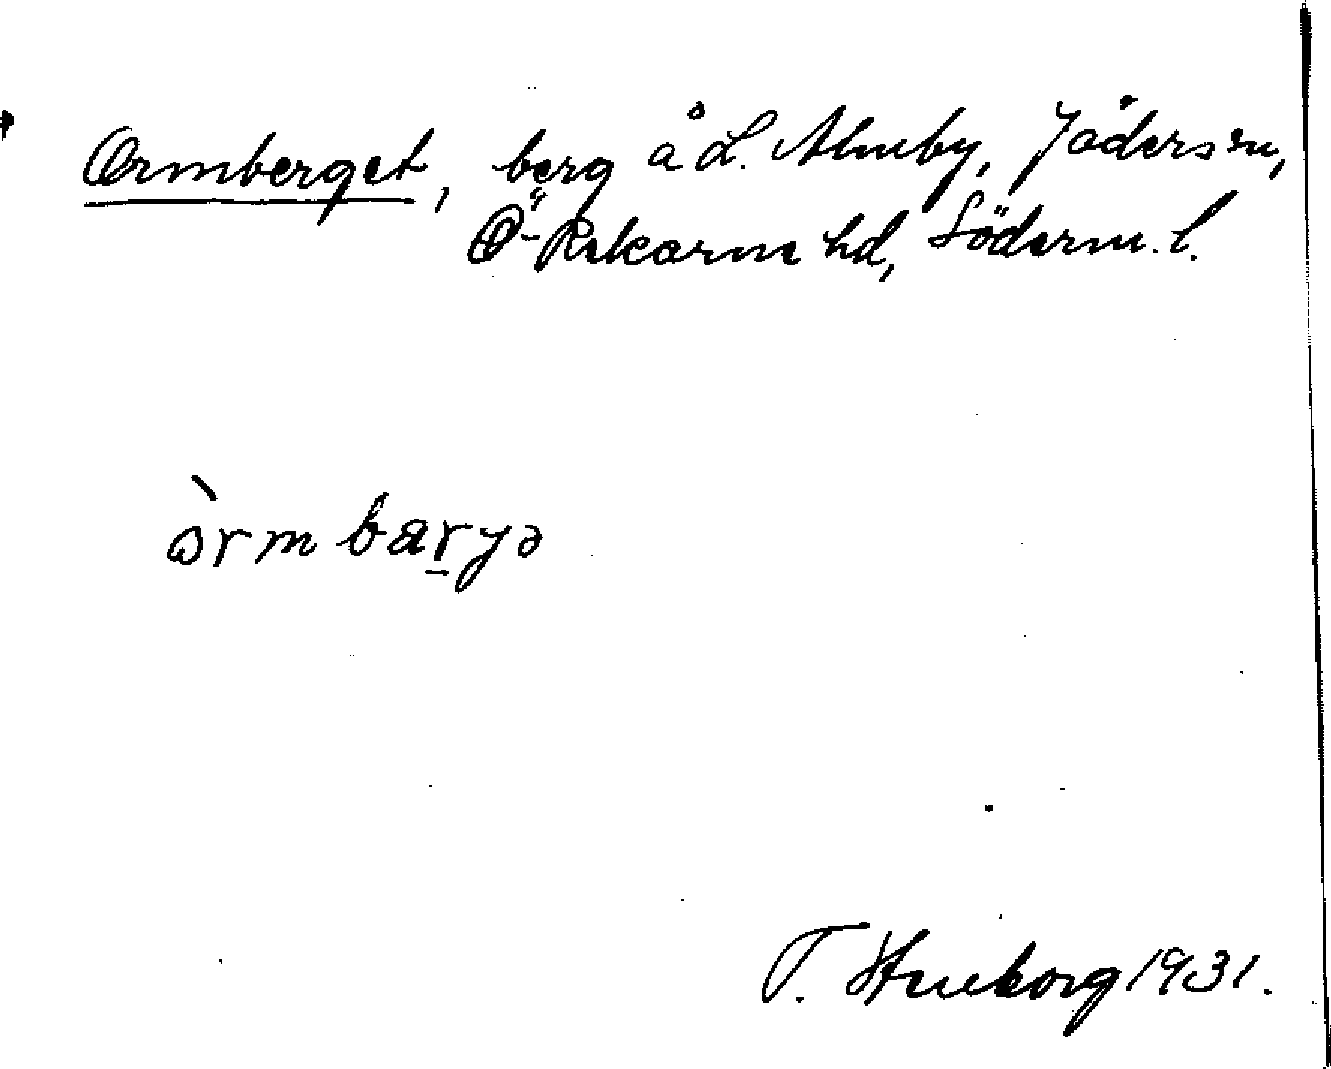 Ormberget, berg å L. Almby, Jäders sn,
Ö-Rekarne hd, Söderm. l.
òrm baryə
1931.